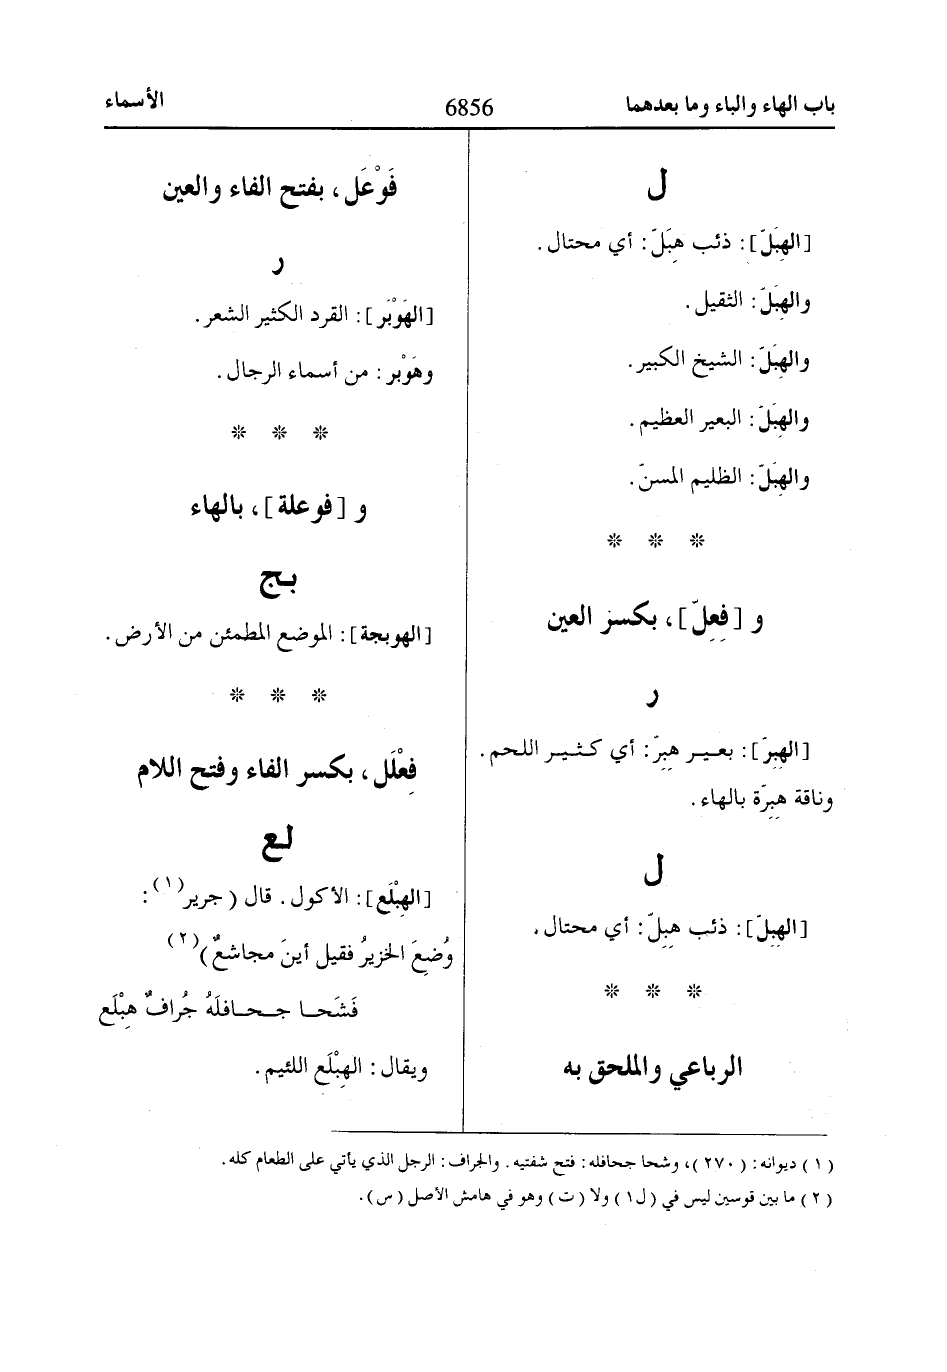 باب الهاء والباء وما بعدهما
6856
الأسماء
ل
[الهِبَلّ]: ذئب هِبَلّ: أي محتال.
والهِبَلّ: الثقيل.
والهِبَلّ: الشيخ الكبير.
والهِبَلّ: البعير العظيم.
والهِبَلّ: الظليم المسنّ.
* * *
و [فِعِلّ]، بكسر العين
ر
[الهِبِرّ]: بعير هِبِرّ: أي كثير اللحم.
وناقة هِبِرّة بالهاء.
ل
[الهِبِلّ]: ذئب هِبِلّ: أي محتال.
* * *
الرباعي والملحق به
فَوْعَل، بفتح الفاء والعين
ر
[الهَوْبَر]: القرد الكثير الشعر.
وهَوْبر: من أسماء الرجال.
* * *
و [فوعلة]، بالهاء
بج
[الهوبجة]: الموضع المطمئن من الأرض.
* * *
فِعْلَل، بكسر الفاء وفتح اللام
لع
[الهِبْلَع]: الأكول. قال (جرير(١):
وُضِعَ الخزيرُ فقيل أينَ مجاشعٌ)(٢)
فَشَحا جحافلَهُ جُرافٌ هِبْلَع
ويقال: الهِبْلَع اللئيم.
(١) ديوانه: (٢٧٠)، وشحا جحافله: فتح شفتيه. والجراف: الرجل الذي يأتي على الطعام كله.
(٢) ما بين قوسين ليس في (ل١) ولا (ت) وهو في هامش الأصل (س).